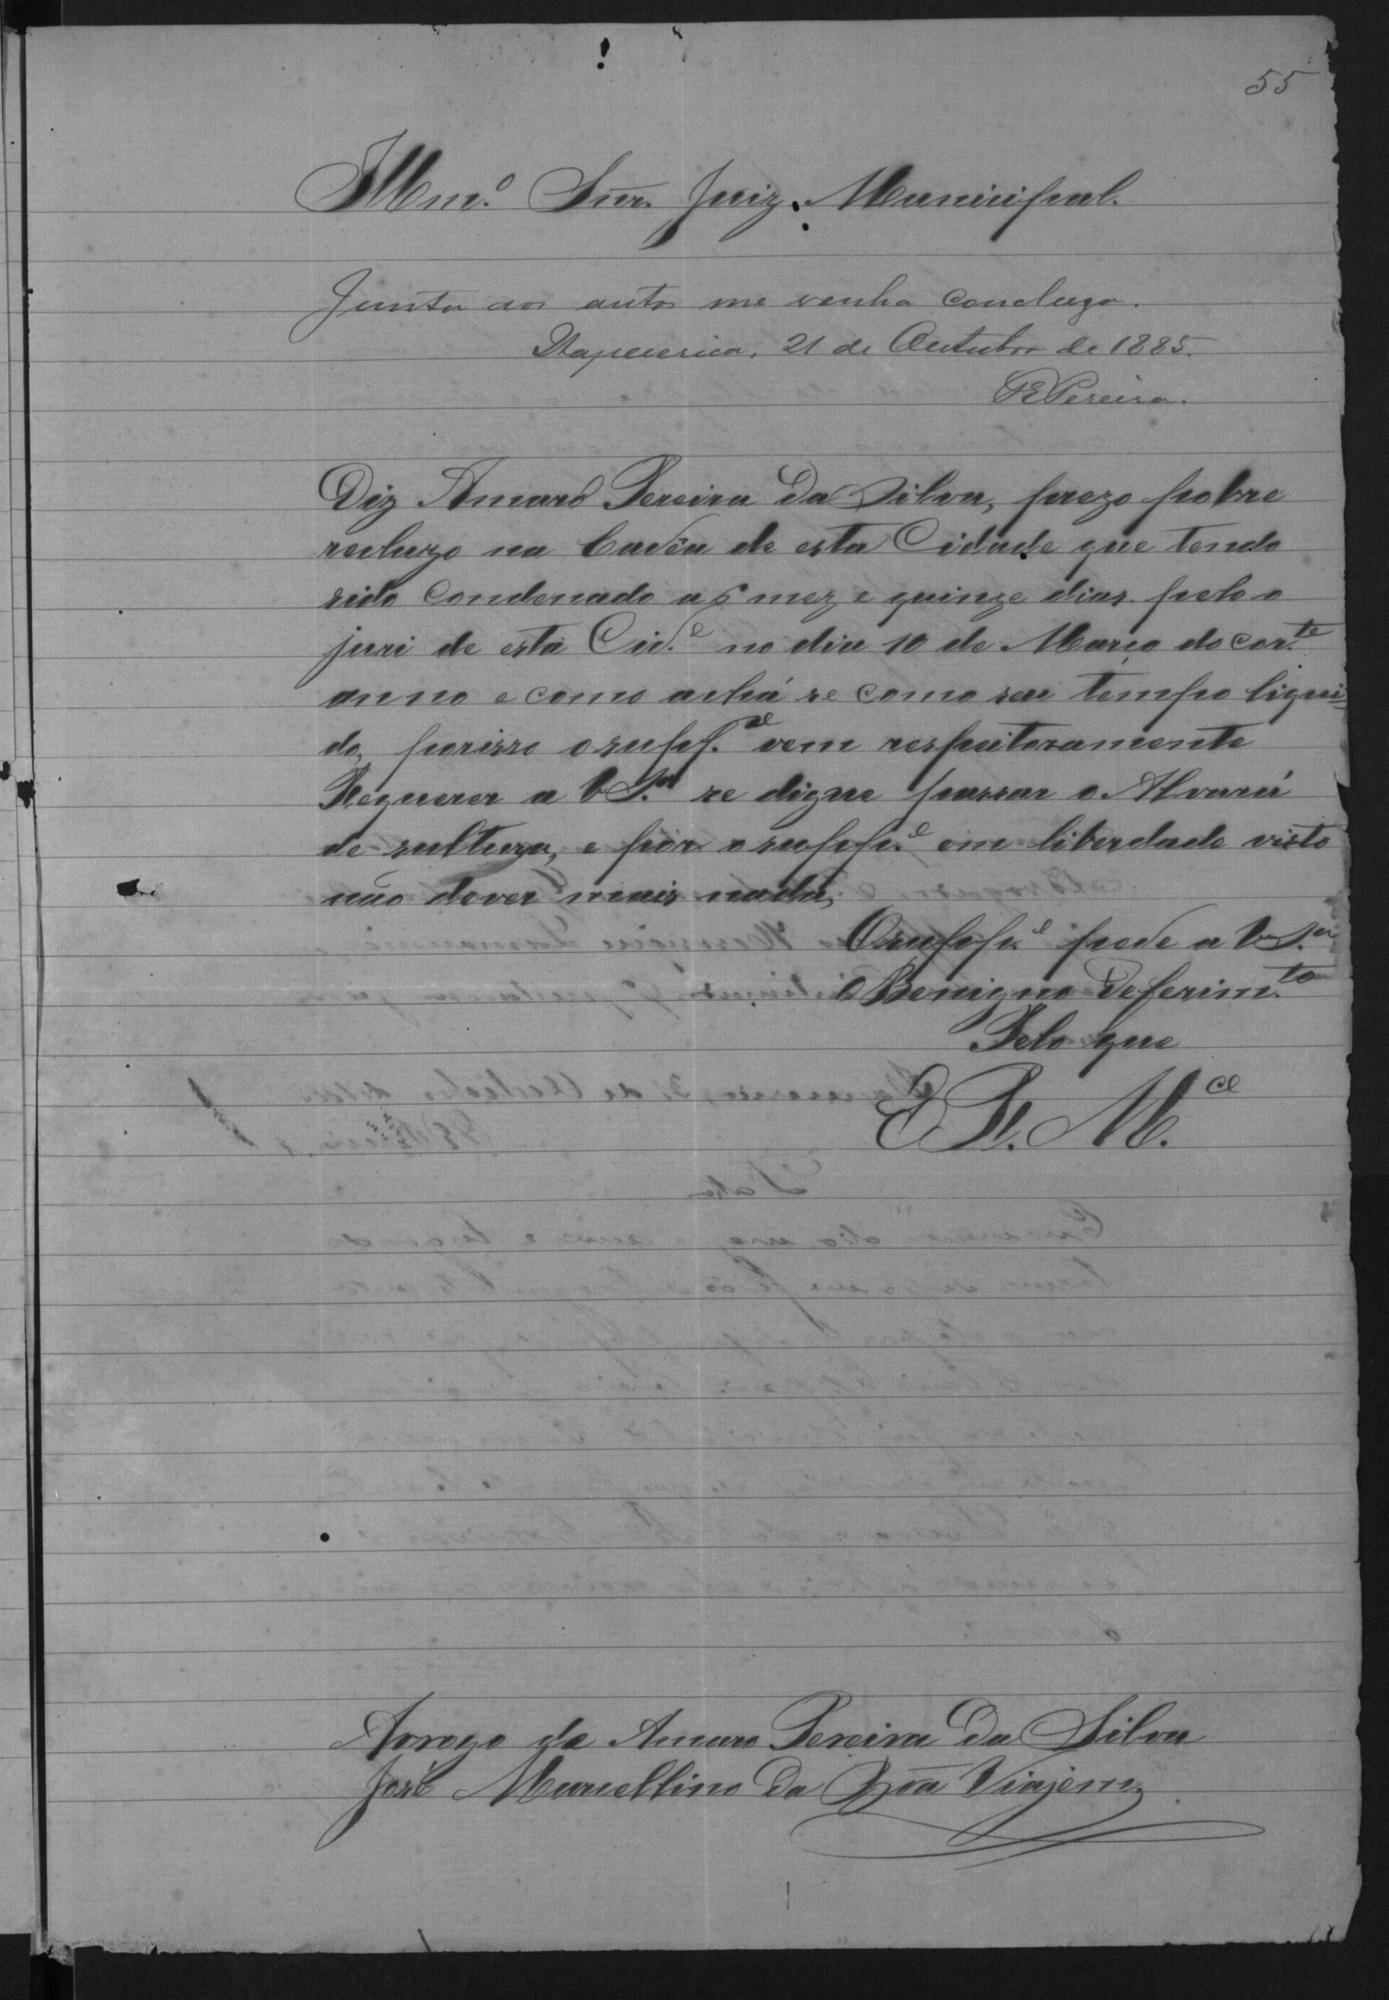 55
Illm.º Snr. Juiz Municipal.
Junta aos autos me venha concluzo.
Itapecerica, 21 de Outubro de 1885.
REPereira.
Diz Amaro Pereira da Silva, prezo pobre
recluzo na Cadêa de esta Cidade que tendo
sido Condenado a 6 mez e quinze dias pelo o
juri de esta Cid.e no dia 10 de Março do cor.te
anno e como achá se como seu tempo liqui
do, porisso o supp.e vem respeitozamente
Requerer a V S.ª se digne passar o Alvará
de sultura, e pôr o supp.e em liberdade visto
não dever mais nada,
O supp.e pede a V S.ª
Benigno Deferim.to
Pelo que
E R. M.ce
Arrogo de Amaro Pereira da Silva
José Marcellino da Bôa Viajem